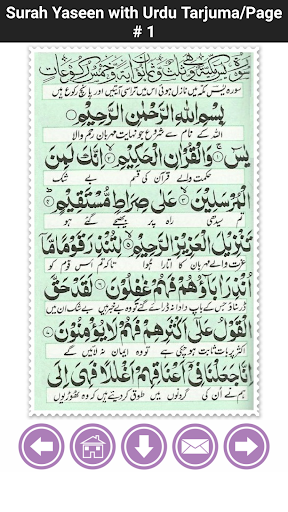 Surah Yaseen with Urdu Tarjuma/Page
# 1
سورہ یٰسٓ مکہ میں نازل ہوئی اس میں تراسی آیتیں اور پانچ رکوع ہیں
بِسْمِ اللّٰهِ الرَّحْمٰنِ الرَّحِيْمِ
اللہ کے نام سے شروع جو نہایت مہربان رحم والا
يٰسٓ ۚ وَالْقُرْاٰنِ الْحَكِيْمِ ۙ اِنَّكَ لَمِنَ
حکمت والے قرآن کی قسم بے شک
الْمُرْسَلِيْنَ ۙ عَلٰى صِرَاطٍ مُّسْتَقِيْمٍ ؕ
تم سیدھی راہ پر بھیجے گئے ہو
تَنْزِيْلَ الْعَزِيْزِ الرَّحِيْمِ ۙ لِتُنْذِرَ قَوْمًا مَّآ
عزت والے مہربان کا اتارا ہوا تاکہ تم اس قوم کو
اُنْذِرَ اٰبَآؤُهُمْ فَهُمْ غٰفِلُوْنَ لَقَدْ حَقَّ
ڈر سناؤ جس کے باپ دادا نہ ڈرائے گئے تو وہ بے خبر ہیں بے شک ان میں
الْقَوْلُ عَلٰٓى اَكْثَرِهِمْ فَهُمْ لَا يُؤْمِنُوْنَ
اکثر پر بات ثابت ہو چکی ہے تو وہ ایمان نہ لائیں گے
اِنَّا جَعَلْنَا فِيْٓ اَعْنَاقِهِمْ اَغْلٰلًا فَهِيَ اِلَى
ہم نے ان کی گردنوں میں طوق کر دیئے ہیں کہ وہ ٹھوڑیوں